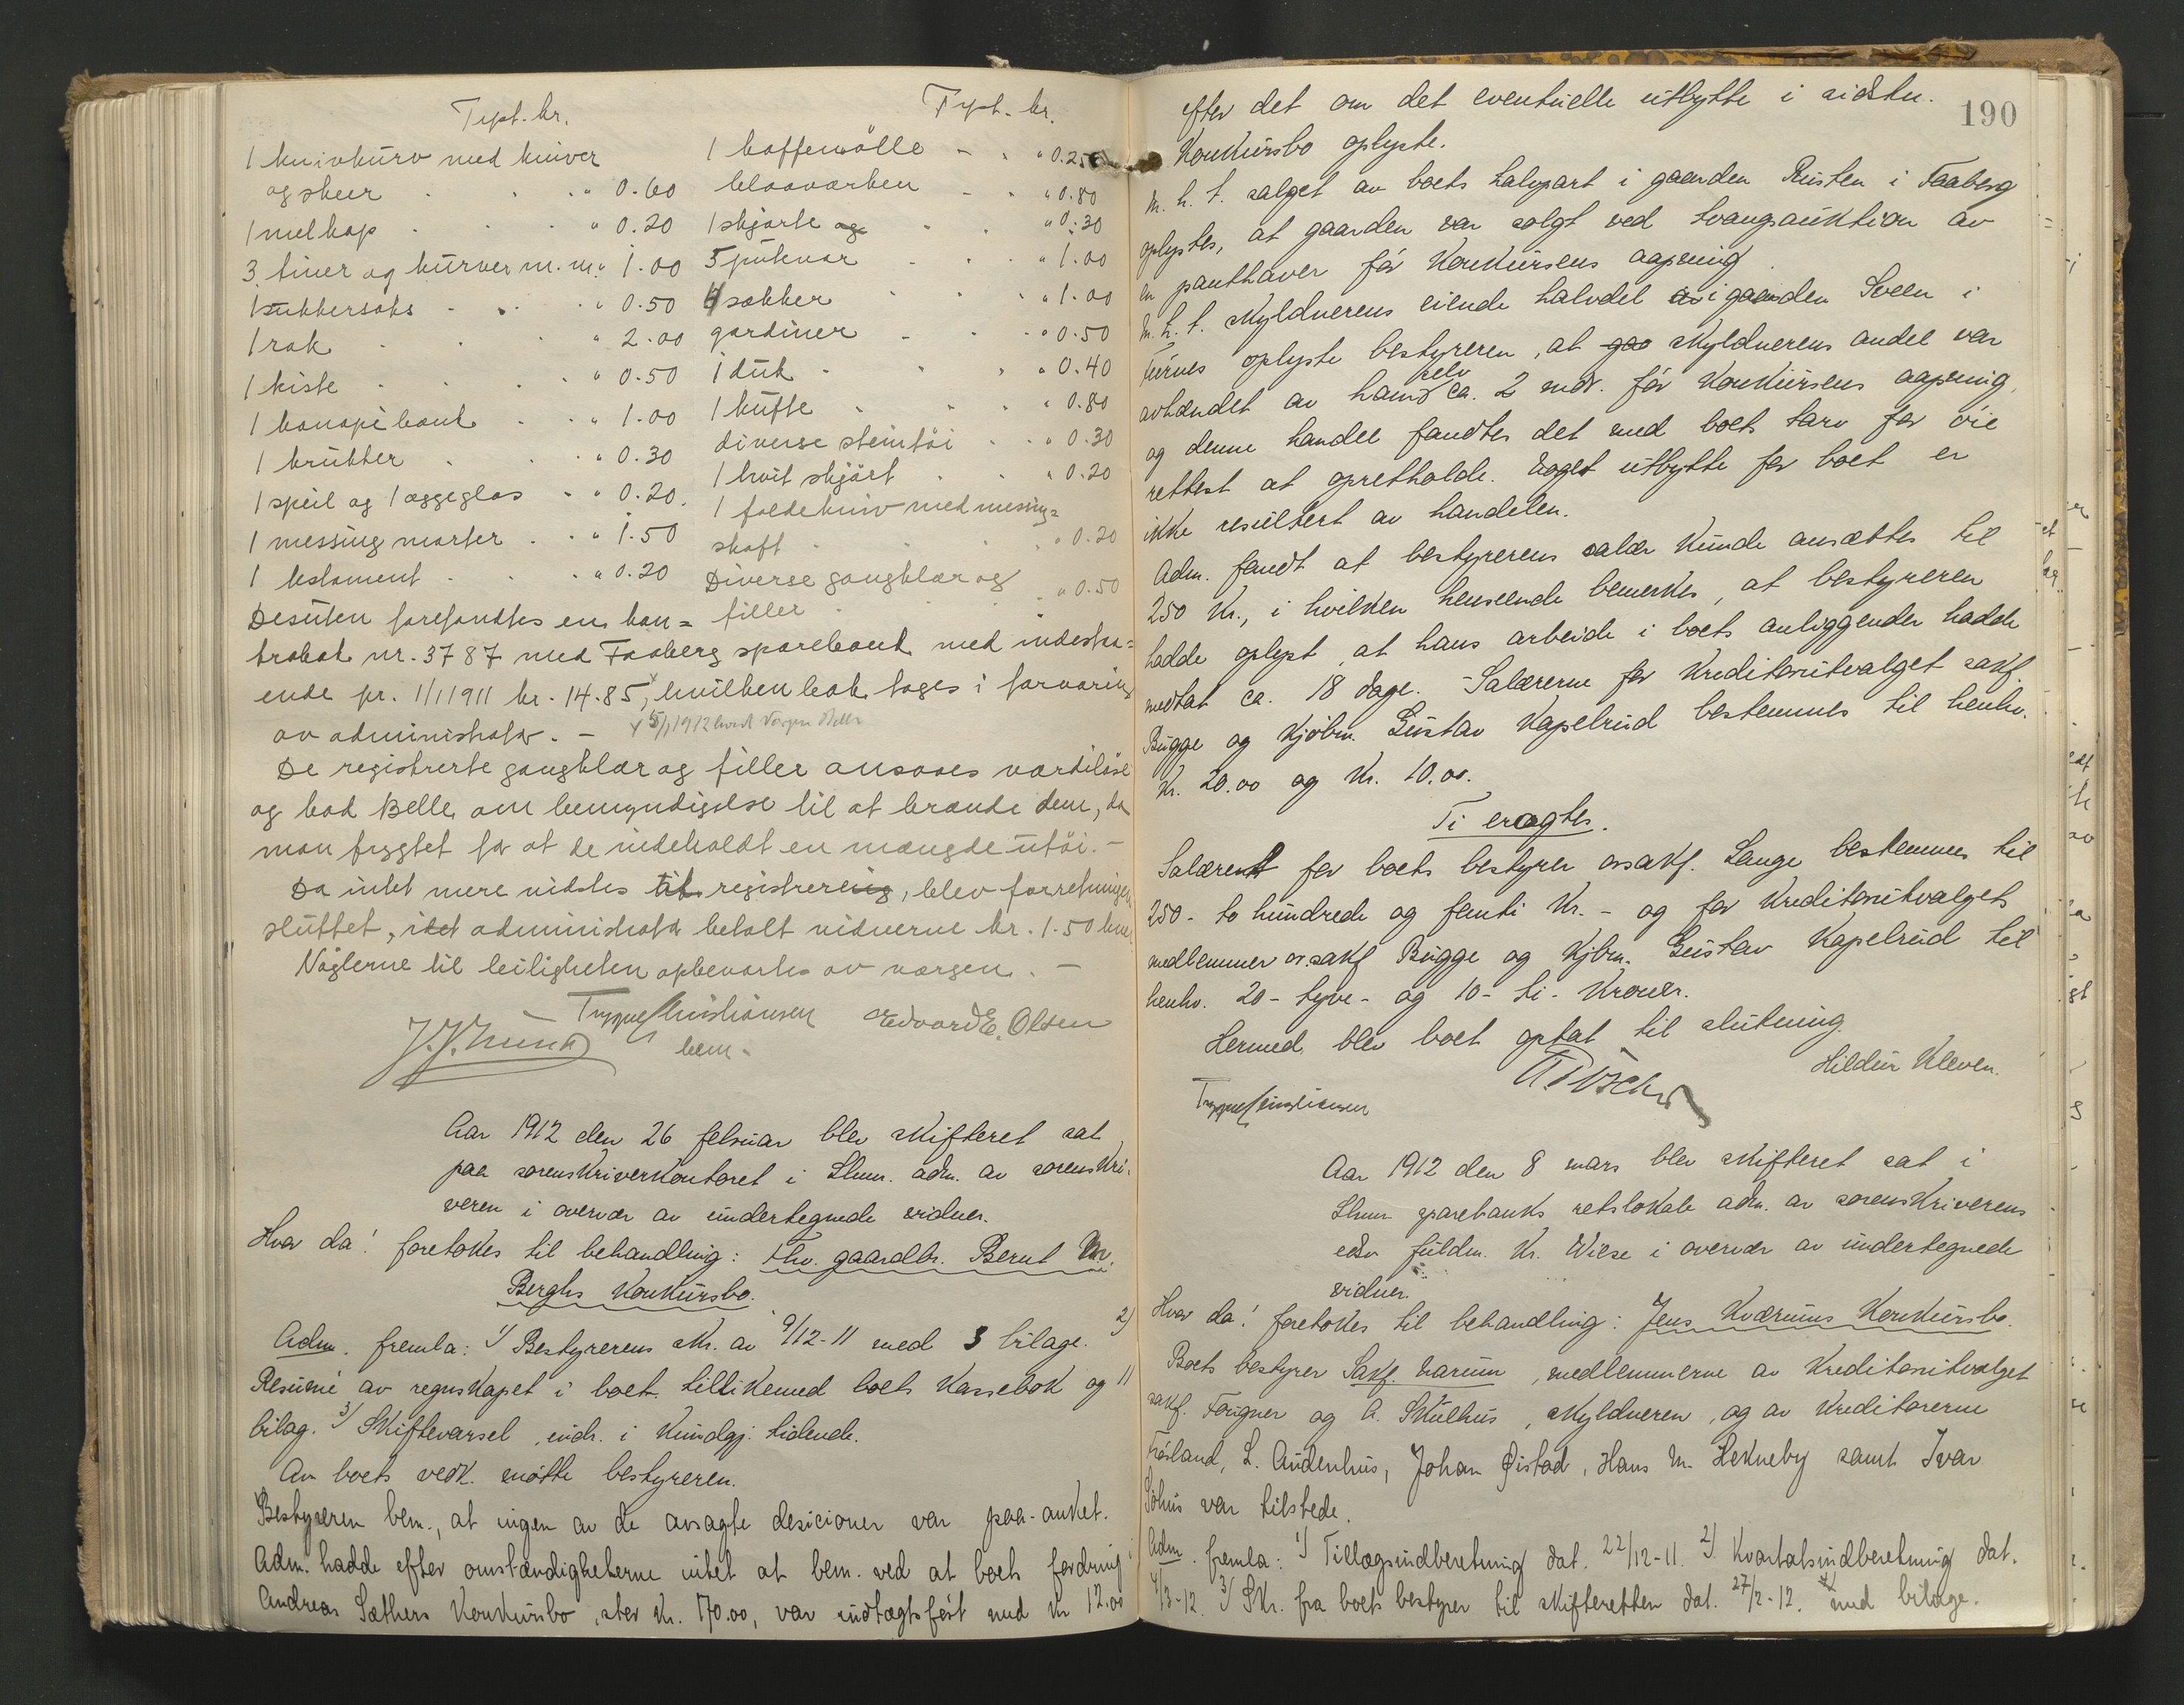 Trpt. kr.
1 knivkurv med kniver
og skeer . . . " 0.60
1 melkop . . . " 0.20
3 tiner og kurver m.m. " 1.00
1 sukkersaks . . " 0.50
1 rok . . . " 2.00
1 kiste . . . " 0.50
1 kanapé bænk . . " 1.00
1 krukker . . . " 0.30
1 speil og 1 æggeglas . . " 0.20.
1 messing morter . . " 1.50
1 testament . . . " 0.20
Trpt. kr.
1 kaffemølle - . " 0.25
blaavarken - . " 0.80
1 skjorte og . . " 0.30
5 putevar . . . " 1.00
4 sækker . . " 1.00
gardiner - . . " 0.50
1 duk . . . " 0.40
1 kufte . . . " 0.80
diverse steintöi . . " 0.30
1 hvit skjört . . " 0.20
1 foldekniv med messing=
skaft . . . " 0.20
Diverse gangklær og
filler . . . " 0.50
Desuten forefandtes en kon=
trabok nr. 3787 med Faaberg sparebank med indestaa=
ende pr. 1/1 1911 kr. 14.85, hvilken bok toges i forvaring
av administrator. -
De registrerte gangklær og filler ansaaes værdiløse
og bad Belle om bemyndigelse til at brænde dem, da
man frygtet for at de indeholdt en mængde utöi. -
Da intet mere vidstes til registrering, blev forretningen
sluttet, idet administrator betalt vidnerne kr. 1.50 hver
Nöglerne til leiligheten opbevartes av værgen. -
Trygve Christiansen Edvard E. Olsen
bem.
Aar 1912 den 26 februar blev skifteret sat
paa sorenskriverkontoret i Lhmr. adm. av sorenskri-
veren i overvær av undertegnede vidner.
Hvor da! foretokes til behandling: Fhv. gaardbr. Bernt M.
Berghs konkursbo.
Adm. fremla: 1) Bestyrerens skr. av 9/12-11 med 3 bilage. 2)
Resumé av regnskapet i boet tillikemed boets kassebok og 11
bilag. 3) Skiftevarsel, indr. i Kundgj. tidende.
Av boets vedk. møtte bestyreren.
Bestyreren bem., at ingen av de avsagte desicioner var paa-anket.
Adm. hadde efter omstændigheterne intet at bem. ved at boets fordring i
Andreas Sæthers konkursbo, stor kr. 170.00, var indtægtsført med kr 12.00
190
efter det om det eventuelle utbytte i sidstn.
konkursbo oplyste.
M. h. t. salget av boets halvpart i gaarden Rusten i Faaberg
oplystes, at gaarden var solgt ved tvangsauktion av
en panthaver før konkursens aapning.
M. h. t. skyldnerens eiende halvdel av i gaarden Sveen i
Furnes oplyste bestyreren, at gaa skyldnerens andel var
avhændet av ham selv ca. 2 mdr. før konkursens aapning,
og denne handel fandtes det med boets tarv for øie
rettest at opretholde. Noget utbytte for boet er
ikke resultert av handelen.
Adm. fandt at bestyrerens salær kunde ansættes til
250 kr., i hvilken henseende bemerkes, at bestyreren
hadde oplyst, at hans arbeide i boets anliggender hadde
medtat ca. 18 dage. Salærerne for kreditorutvalget sakf.
Bugge og kjøbm. Gustav Kapelrud bestemmes til henhv.
kr. 20.00 og kr. 10.00.
Ti eragtes.
Salæret for boets bestyrer o.r.sakf. Lange bestemmes til
250 - to hundrede og femti kr. - og for kreditorutvalgets
medlemmer o.r.sakf Bugge og kjbm. Gustav Kapelrud til
henhv. 20 - tyve - og 10 - ti - kroner.
Hermed blev boet optat til slutning.
Hildur Kleven.
Trygve Christiansen
Aar 1912 den 8 mars blev skifteret sat i
Lhmr sparebanks retslokale adm. av sorenskriverens
edsv fuldm. Kr. Wiese i overvær av undertegnede
vidner.
Hvor da! foretokes til behandling: Jens Kværnums konkursbo.
Boets bestyrer Sakf. Narum, medlemmerne av kreditorutvalget
sakf. Fougner og A. Skulhus, skyldneren, og av kreditorerne
Frøsland, L. Audenhus, Johan Øistad, Hans M. Hekneby samt Ivar
Søhus var tilstede.
Adm. fremla: 1) Tillægsindberetning dat. 22/12-11. 2) Kvartalsindberetning dat.
4/3-12. 3) Skr. fra boets bestyrer til skifteretten dat. 27/2-12. med bilage.